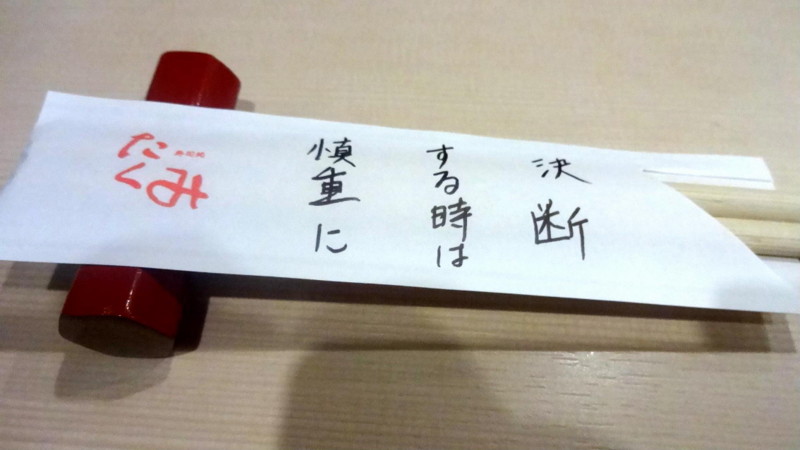 決断
する時は
慎重に
たくみ